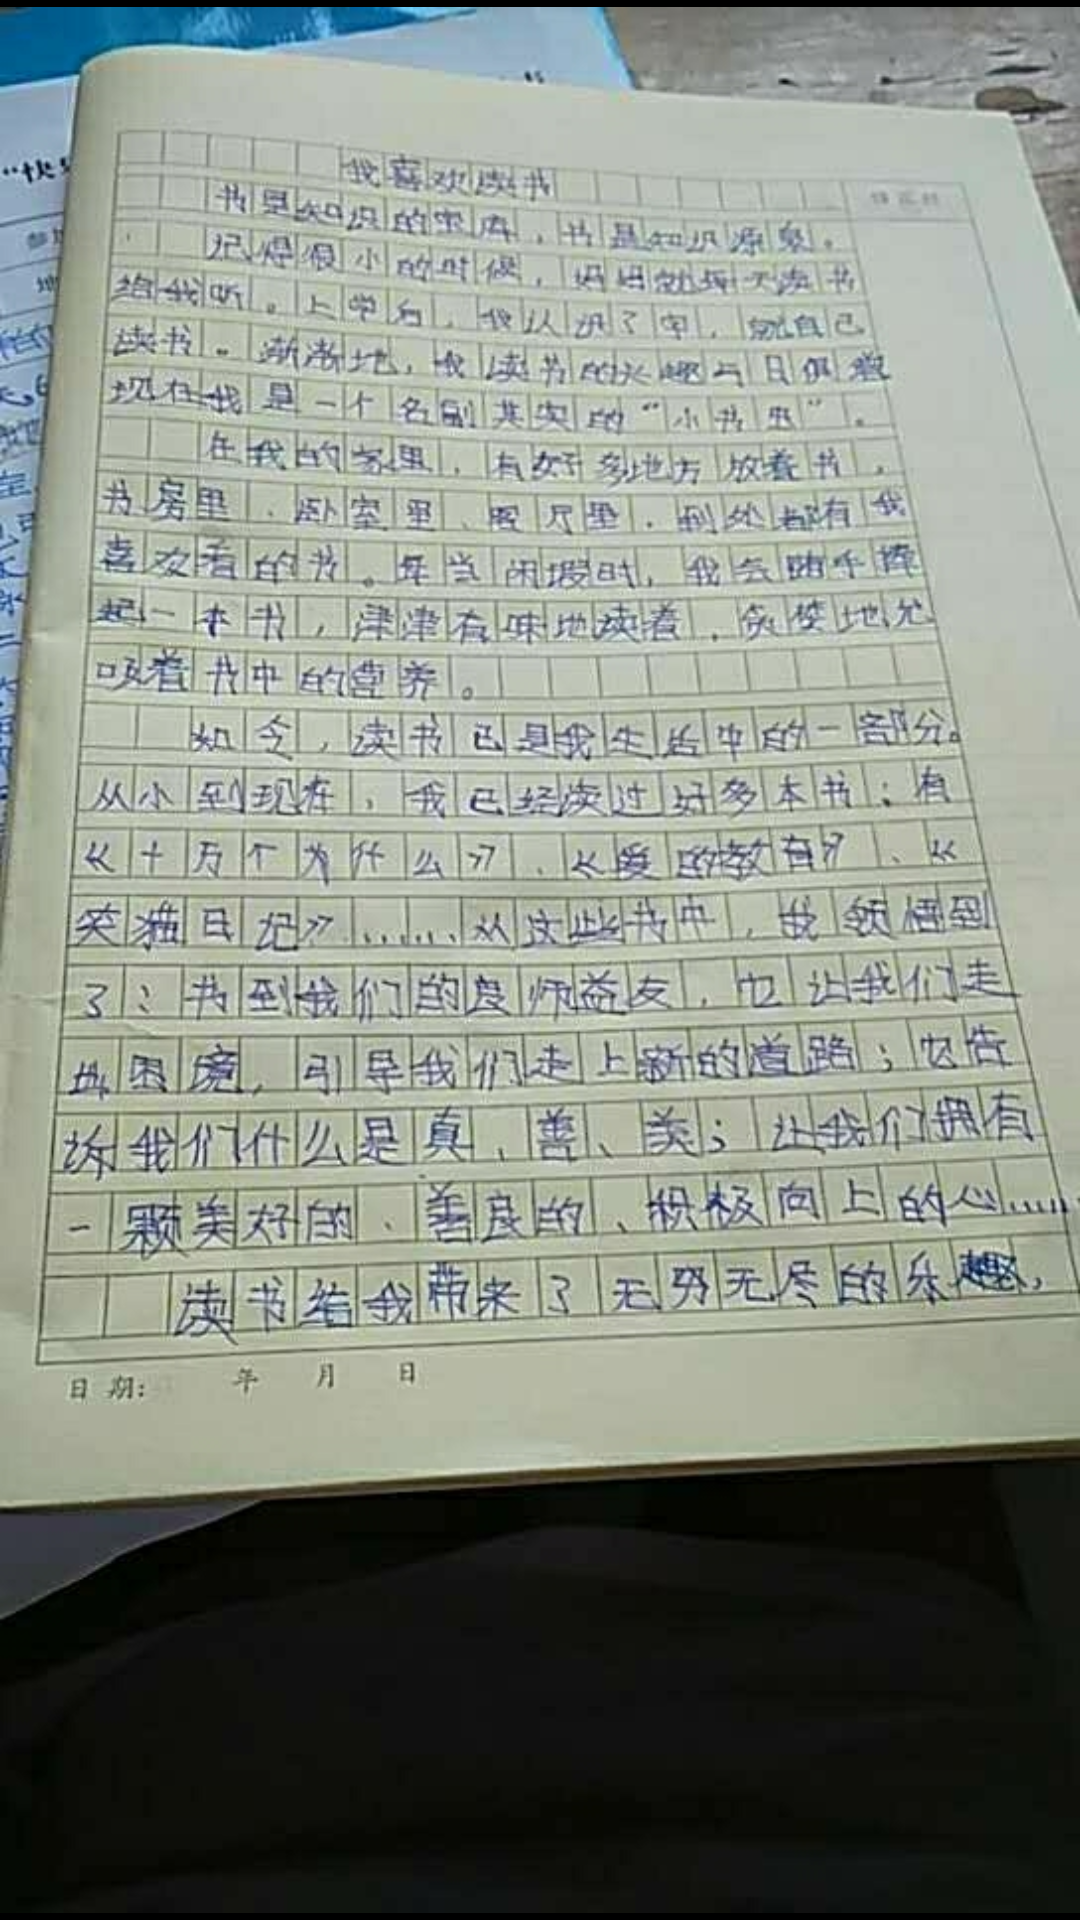 我喜欢读书
书是知识的宝库，书是知识源泉。
记得很小的时候，妈妈就每天读书
给我听。上学后，我认识了字，就自己
读书。渐渐地，我读书的兴趣与日俱增
现在我是一个名副其实的“小书虫”。
在我的家里，有好多地方放着书，
书房里、卧室里、客厅里，到处都有我
喜欢看的书。每当闲暇时，我会随手捧
起一本书，津津有味地读着，贪婪地允
吸着书中的营养。
如今，读书已是我生活中的一部分。
从小到现在，我已经读过好多本书：有
《十万个为什么》、《爱的教育》、《
笑猫日记》……从这些书中，我领悟到
了：书到我们的良师益友，它让我们走
出困境，引导我们走上新的道路；它告
诉我们什么是真、善、美；让我们拥有
一颗美好的、善良的、积极向上的心……
读书给我带来了无穷无尽的乐趣，
日期： 年 月 日